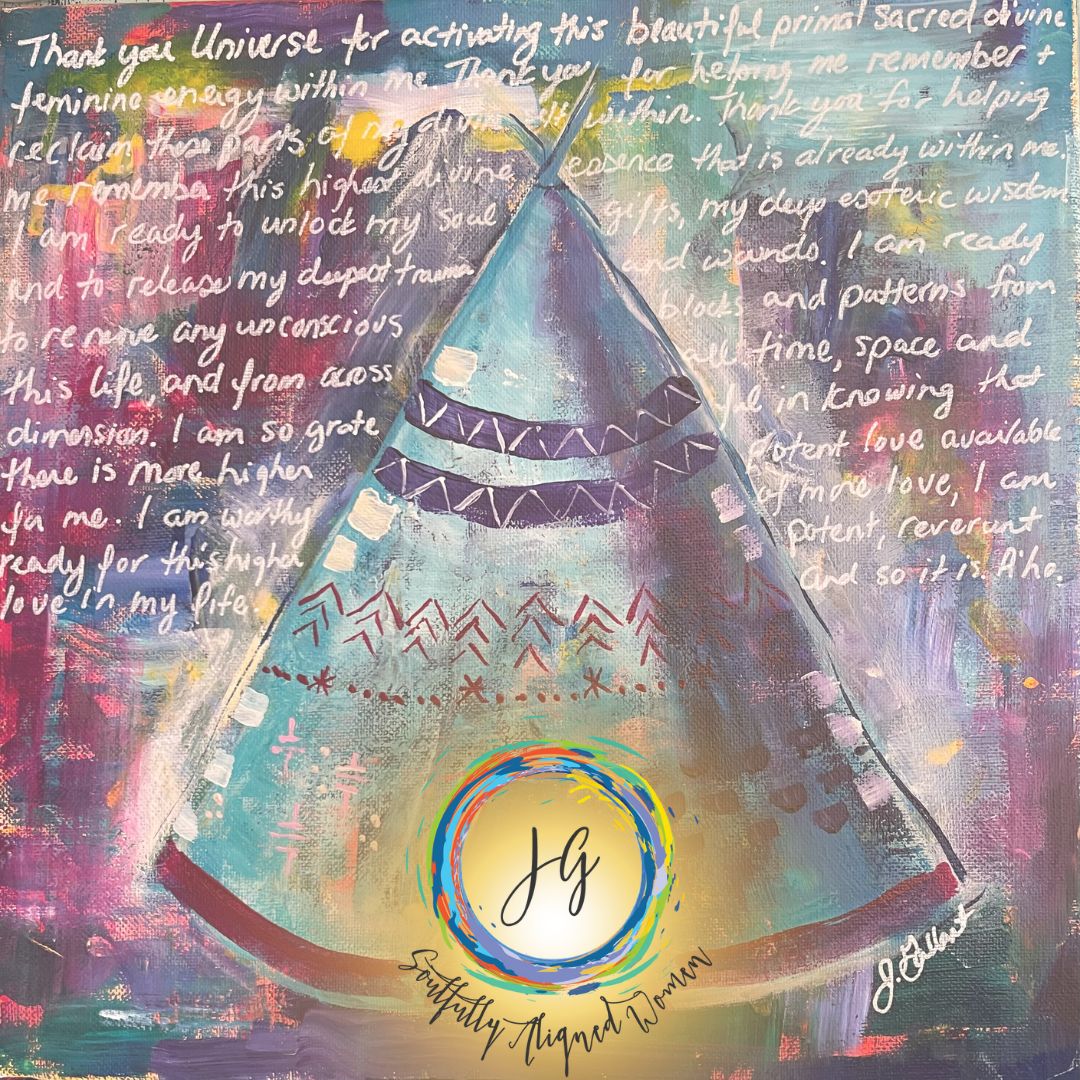 Thank you Universe for activating this beautiful primal sacred divine
feminine energy within me. Thank you for helping me remember +
reclaim these parts of my divine self within. Thank you for helping
me remember this highest divine essence that is already within me.
I am ready to unlock my soul gifts, my deep esoteric wisdom
and to release my deepest trauma and wounds. I am ready
to remove any unconscious blocks and patterns from
this life, and from across all time, space and
dimension. I am so grate ful in knowing that
there is more higher potent love available
for me. I am worthy of more love, I am
ready for this higher potent, reverant
love in my life. and so it is A'ho.
JG
J. Gallant
Soulfully Aligned Women